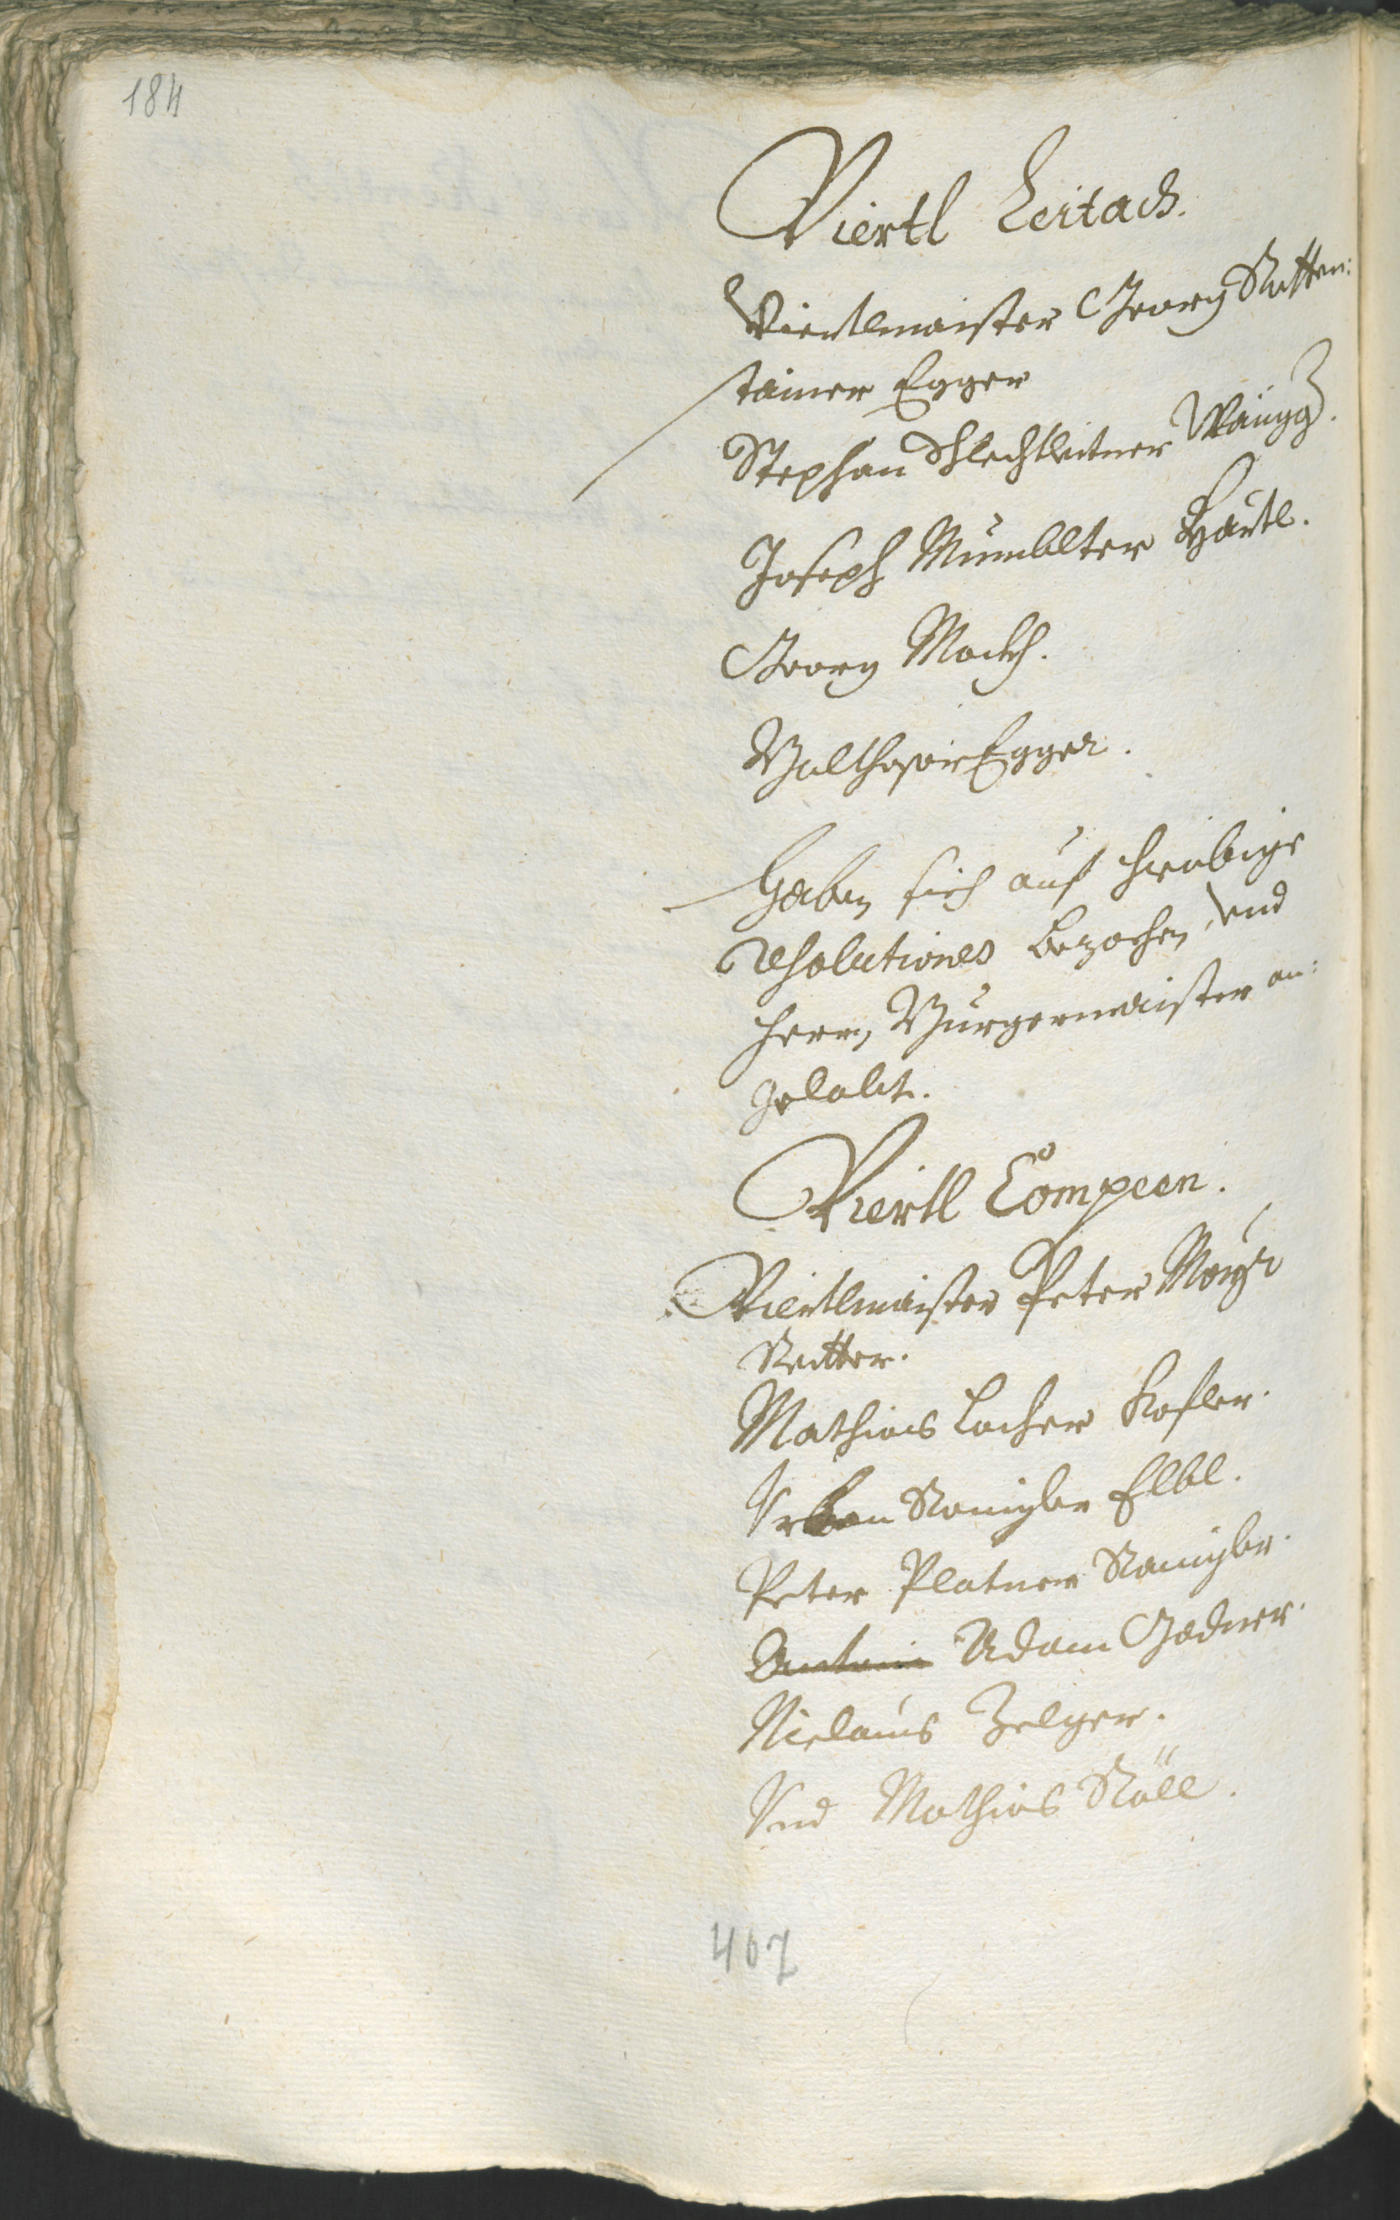 184
Viertl Leitach.
Viertlmaister Georg Rotten:
stainer Egger
Stephan Schlechtleitner Wängg.
Joseph Mumblter Härtl.
Georg Mockh.
Balthasar Egger.
Haben sich auf hievorige
resolutiones bezochen, und
herrn Burgermaister an:
gelobt.
Viertl Compeen.
Viertlmaister Peter Mayr
Reitter.
Mathias Locher Kofler.
Urban Ramigler Elbl.
Peter Platner Ramigler.
Antoni Adam Gadner.
Niclaus Zelger.
Und Mathias Röll.
467